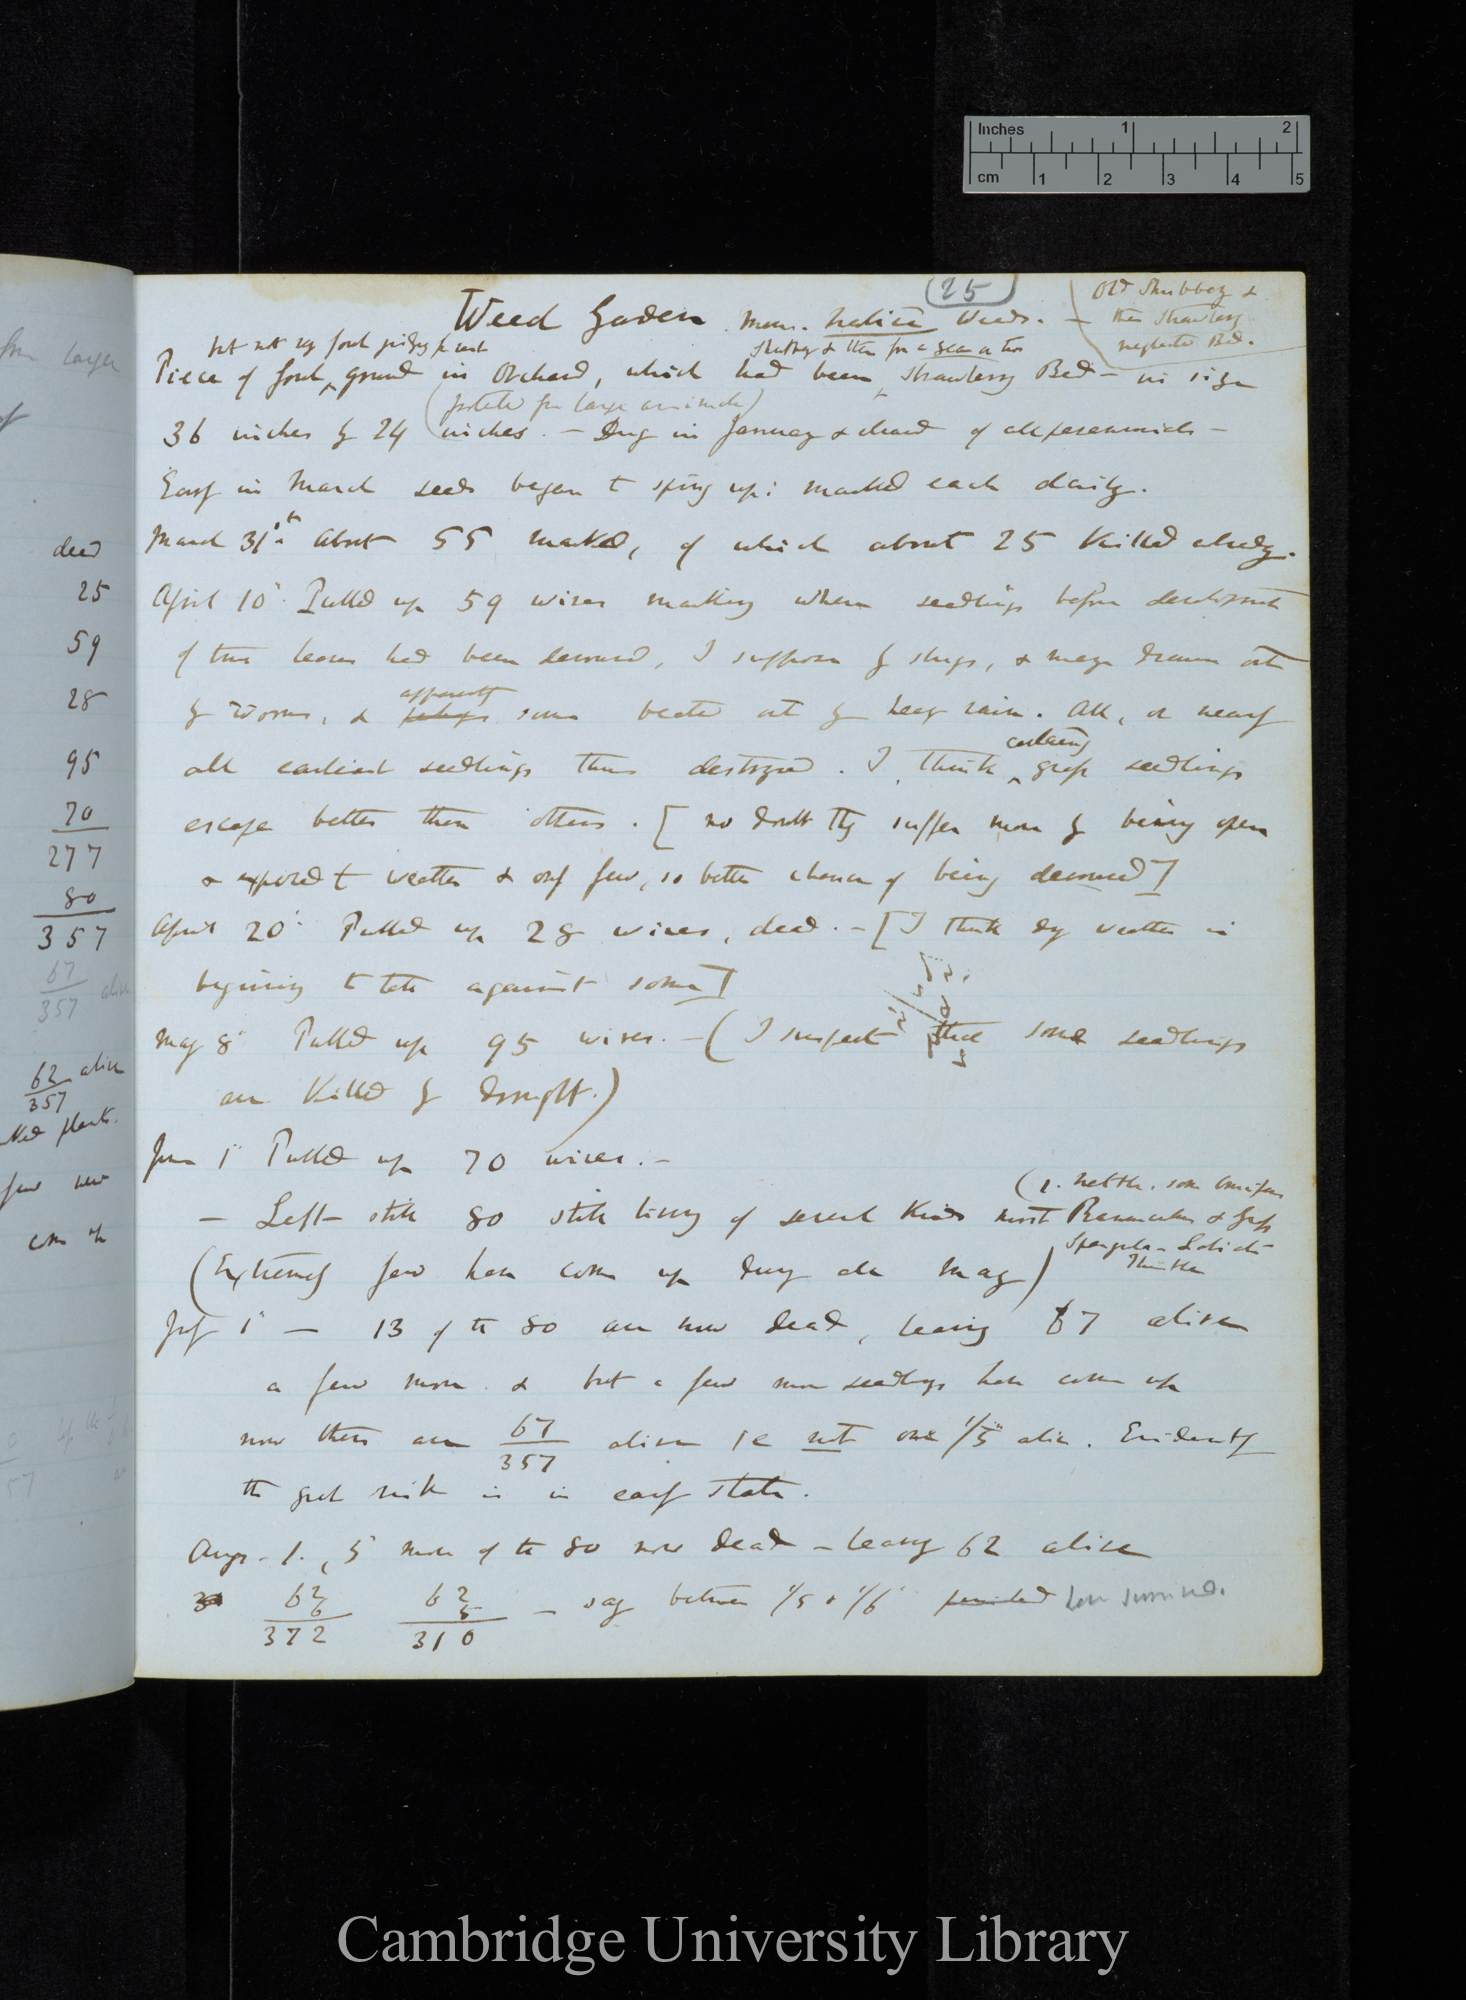 Inches 1 2
cm 1 2 3 4 5
25
Weed Garden means native weeds. —
Old Shrubbery &
then Strawberry
neglected Bed.
but not very foul judging by
Shrubbery & then for a year or two
Piece of foul ground in Orchard, which had been Strawberry Bed — in size
(protected from large animals)
36 inches by 24 inches. — Dug in January & cleared of all perennials —
Early in March seeds began to spring up; marked each daily.
March 31st about 55 marked, of which about 25 killed already.
April 10th Pulled up 59 wires marking where seedlings before development
of true leaves had been devoured, I suppose by slugs, & many drawn out
apparently
by worms, & perhaps some beaten out by heavy rain. All, or nearly
certainly
all earliest seedlings thus destroyed. I think grass seedlings
escape better than others. [no doubt they suffer more by being open
& exposed to weather & only few, so better chance of being devoured]
April 20th Pulled up 28 wires, dead. — [I think dry weather is
beginning to tell against some]
May 8th Pulled up 95 wires. — (I suspect that some seedlings
are killed by drought.)
June 1st Pulled up 70 wires. —
— Left still 80 still living of several kinds most Ranunculus & Grass
(1. nettle. some Crucifers
Spergula
Thistle
(Extremely few have come up during all May)
July 1st — 13 of the 80 are now dead, leaving 67 alive
a few more & but a few more seedlings have come up
now there are 67/357 alive ie not one 1/5 alive. Evidently
the great risk is in early state.
Aug. 1. 5 more of the 80 now dead — leaving 62 alive
62 62
6 5
372 310
— say between 1/5 & 1/6 have survived.
larger
dead
25
59
28
95
70
277
80
357
67/357 alive
62/357 alive
plants.
few new
come up
Cambridge University Library